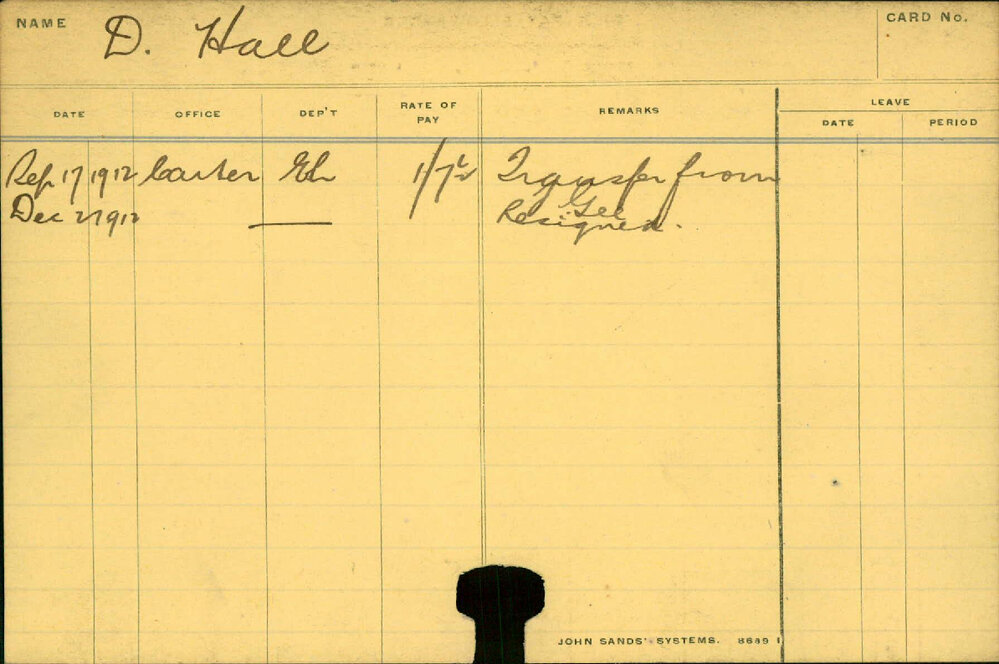 NAME D. Hall CARD No.
DATE OFFICE DEP'T RATE OF PAY REMARKS LEAVE
DATE PERIOD
Sep 17 1912 Carter 1/7½ Transfer from
Gee
Dec 2 1912 — Resigned.
JOHN SANDS' SYSTEMS. 8689